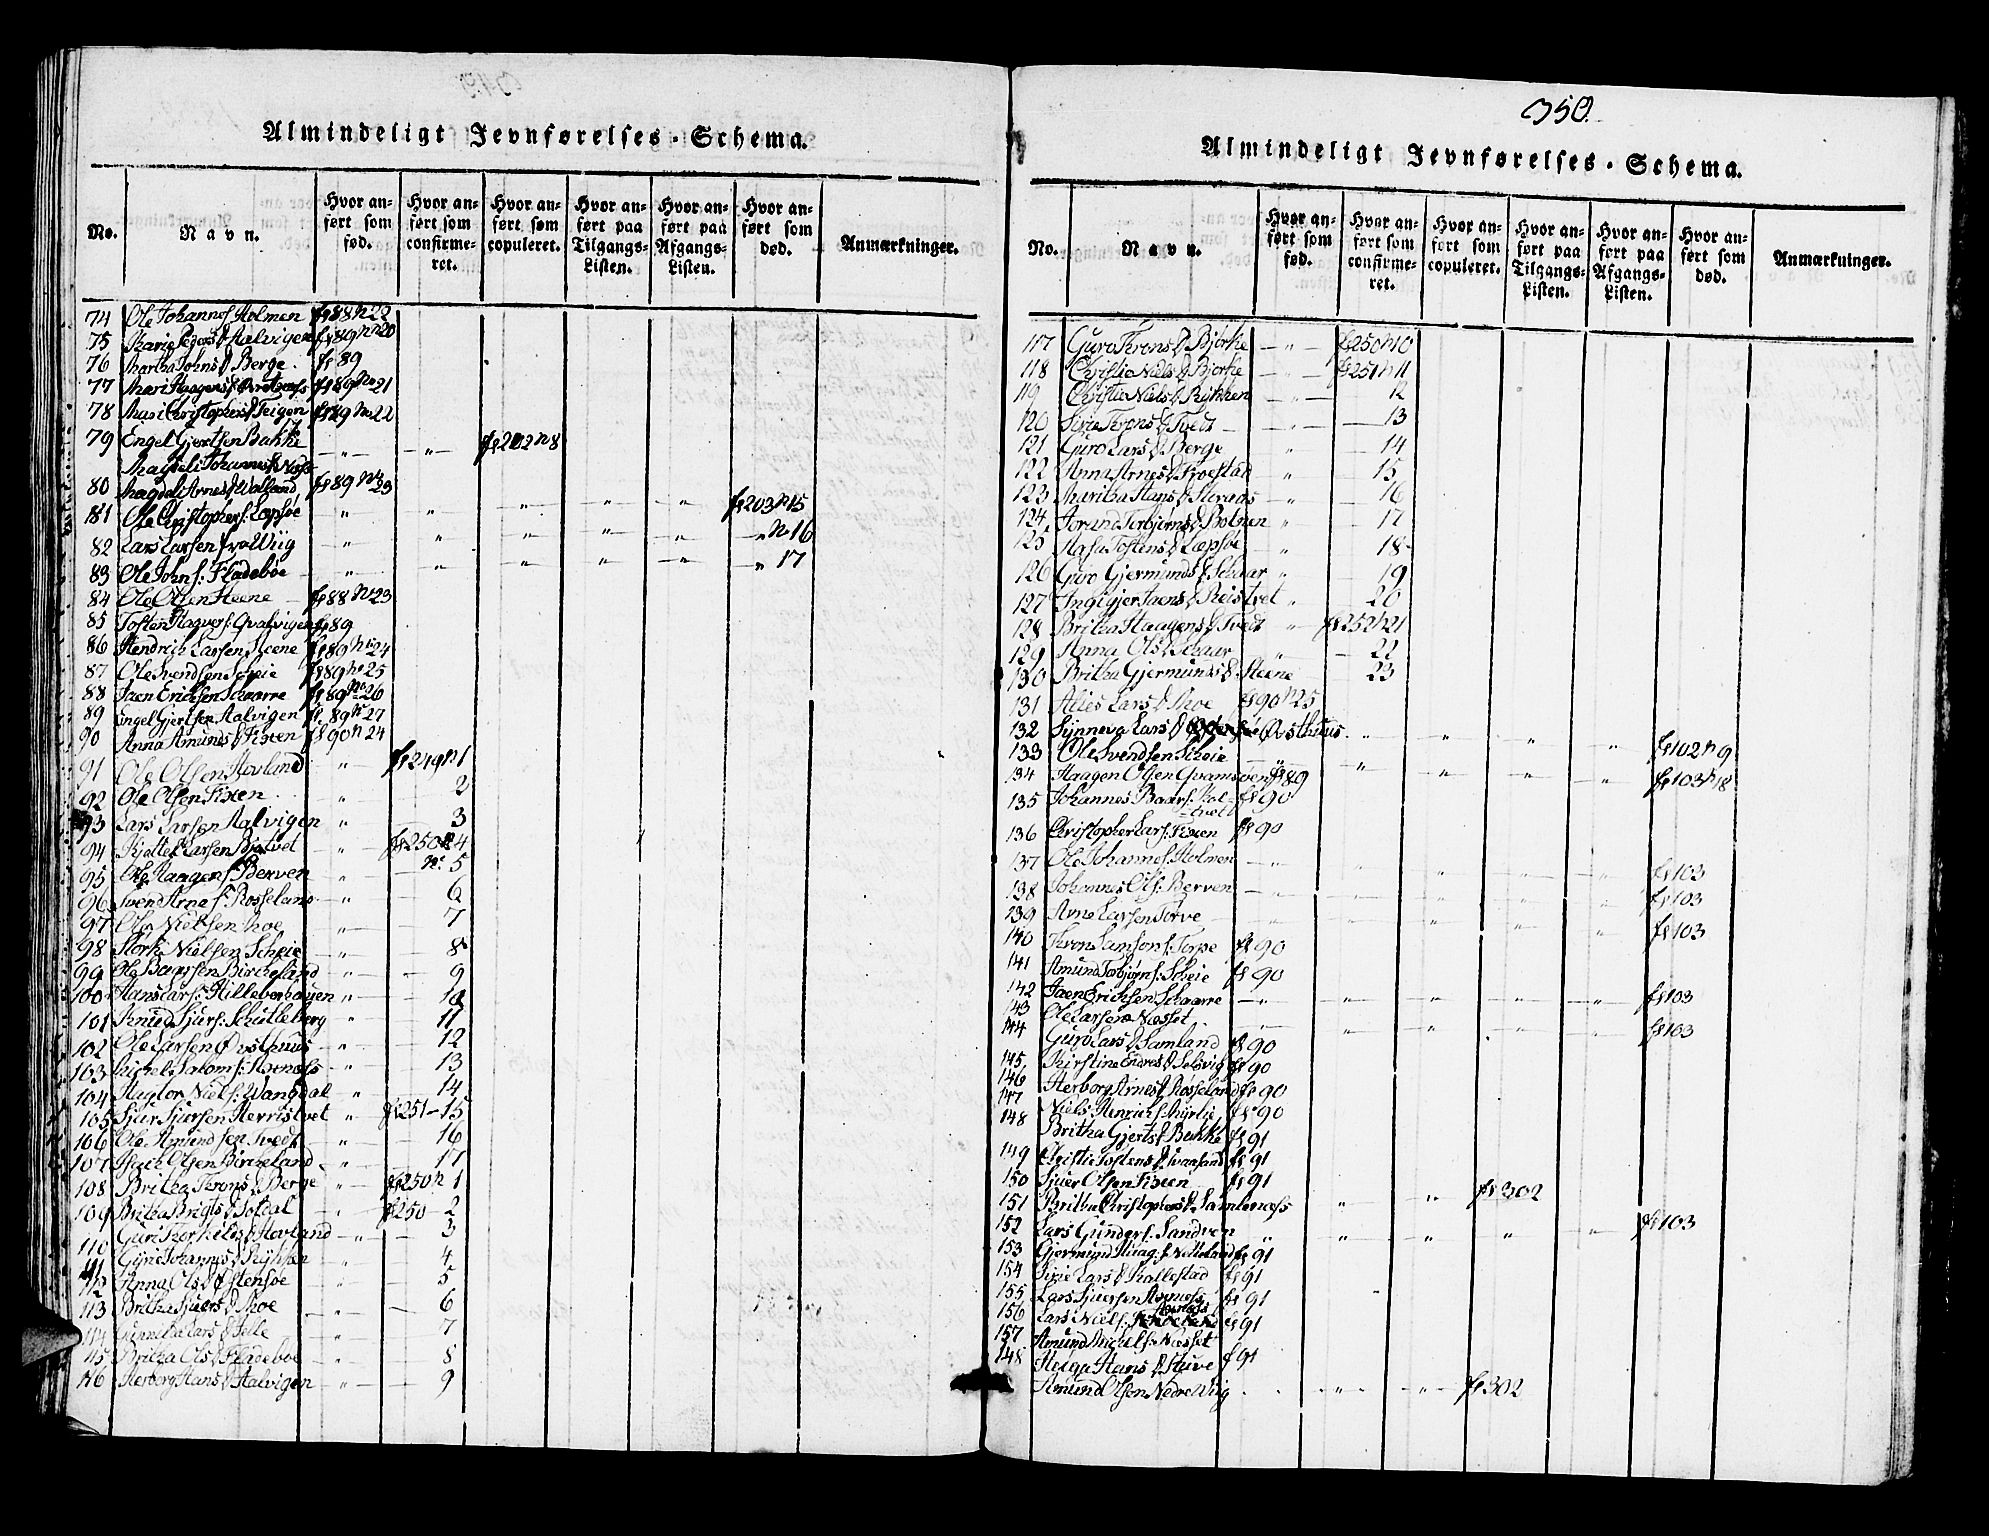 350.
Almindeligt Jevnførelses-Schema.
No. Navn. Hvor anført som fød. Hvor anført som confirmeret. Hvor anført som copuleret. Hvor anført paa Tilgangs-Listen. Hvor anført paa Afgangs-Listen. Hvor anført som død. Anmærkninger.
74 Ole Johannes Holmen fs 88 n 22
75 Karie Peders D Aalvigen fs 89 No 20
76 Martha Johns D Berge fs 89
77 Mari Haagens D fs 89 No 21
78 Mari Christophers D Teigen fs 89 No 22
79 Engel Gjertsen Bakke - " - - " - fs 202 n 8
Magdeli Johannes D Næss
80 Magdeli Arnes D Wolland fs 89 No 23
81 Ole Christophers: Lepsøe " " " " " fs 203 n 15
82 Lars Larsen fra Wiig " " " " " " N 16
83 Ole Johns: Fladebøe " " " " " " 17
84 Ole Olsen Steene fs 88 No 23
85 Tosten Hagvers: Qvalvigen fs 89
86 Hendrich Larsen Steene fs 89 No 24
87 Ole Svendsen Scheie fs 89 No 25
88 Jaen Erichsen Schaarre fs 89 No 26
89 Engel Gjertsen Aalvigen fs. 89 n 27
90 Anna Amunds D Fixen fs 90 n 24
91 Ole Olsen Hovland " fs 249 n 1
92 Ole Olsen Fixen " 2
93 Lars Larsen Aalvigen " 3
94 Kjottel Larsen Bjotvet " fs 250 N 4
95 Ole Haagens: Berven " No 5
96 Svend Arnes: Rosseland " 6
97 Ole Nielsen Moe " 7
98 Størk Nielsen Scheie " 8
99 Ole Baarsen Bircheland " 9
100 Hans Lars: Hilleberhougen " 10
101 Knud Sjurs: Schutleberg " 11
102 Ole Larsen Øvsthuus " 12
103 Michel Salom s: Axenæss " 13
104 Hagtor Niels: Wangdal " 14
105 Sjur Sjursen Herristvet " fs 251 - 15
106 Ole Amundsen Tvedt " 16
107 Isach Olsen Bircheland " 17
108 Britha Trons D Berge " fs 250 n 1
109 Britha Brigts D Soldal " fs 250 - 2
110 Guri Torkilds D Hovland " 3
111 Gyrie Johannes D Rykken " 4
112 Anna Ols D Østensøe " 5
113 Britha Sjuers D Moe " 6
114 Gunnilda Lars D " 7
115 Britha Ols D Fladebøe " 8
116 Herborg Hans D Aalvigen " 9
Almindeligt Jevnførelses-Schema.
No. Navn. Hvor anført som fød. Hvor anført som confirmeret. Hvor anført som copuleret. Hvor anført paa Tilgangs-Listen. Hvor anført paa Afgangs-Listen. Hvor anført som død. Anmærkninger.
117 Guro Trons D Bjørke " fs 250 n 10
118 Christie Niels D Bjorke " fs 251 n 11
119 Christie Niels D Rykken " 12
120 Sirie Trons D Tvedt " 13
121 Guro Lars D Berge " 14
122 Anna Arnes D " 15
123 Maritha Hans D " 16
124 Jorund Torbjørns D Botnen " 17
125 Aasa Tostens D Læpsøe " 18
126 Guro Gjermunds D Schaar " 19
127 Ingigjer Jaens D Reistvet " 20
128 Britha Haagens D Tvedt " fs 252 n 21
129 Anna Ols D Schaar " 22
130 Britha Gjermunds D Steene 23
131 Aslies Lars D Moe fs 90 n 25
132 Synneva Lars D Øvsthuus " " " " fs 102 n 9
133 Ole Svendsen Scheie " " " " " fs 103 n 18
134 Haagen Olsen Qvamsøen fs 89
135 Johannes Baars: Kol-tvedt fs 90
136 Christopher Lars: Fixen fs 90
137 Ole Johannes: Holmen " " " " " fs 103
138 Johannes Ols: Berven " " " " " fs 103
139 Arne Larsen Torve " " " " " fs 103
140 Tron Samsons: Torpe fs 90
141 Amund Torbjørns: Scheie fs 90
142 Jaen Erichsen Schaarre " " " " " fs 103
143 Ole Larsen Næsset " " " " " fs 103
144 Guro Lars D Samland fs 90
145 Kirstine Endres D Solsvig fs 90
146 Herborg Arnes D Rosseland fs 90
147 Niels Henrichs: fs 90
148 Britha Gjerts D Bakke fs 91
149 Christie Tostens D fs 91
150 Sjuer Olsen Fixen fs 91
151 Britha Christophers D " " fs 302
152 Lars Gunders: Sandven " " " " " fs 103
153 Gjermund Haag: s Netteland fs 91
154 Sirie Lars D Kallestad fs 91
155 Lars Sjursen Axenæss fs 91
156 Lars Niels: Axenæss fs 91
157 Amund Michels: Næsset
148 Helga Hans D Stuve fs 91
Amund Olsen Nedre Wiig " " fs 302